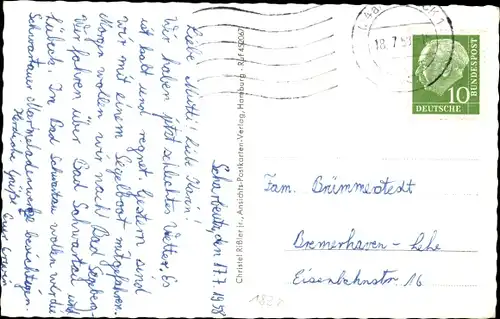 Scharbeutz, den 17.7.1958
Liebe Mutti! Liebe Karin!
Wir haben jetzt schlechtes Wetter. Es
ist kalt und regnet. Gestern sind
wir mit einem Segelboot mitgefahren.
Morgen wollen wir nach Bad Segeberg.
Wir fahren über Bad Schwartau und
Lübeck. In Bad Schwartau wollen wir die
Schwartauer Marmeladenwerke besichtigen.
Herzliche Grüße
Euer
Christel Rißler jr., Ansichts-Postkarten-Verlag, Hamburg - Ruf
18.7.58
10
DEUTSCHE
BUNDESPOST
Fam. Brümmerstedt
Bremerhaven-Lehe
Eisenbahnstr. 16